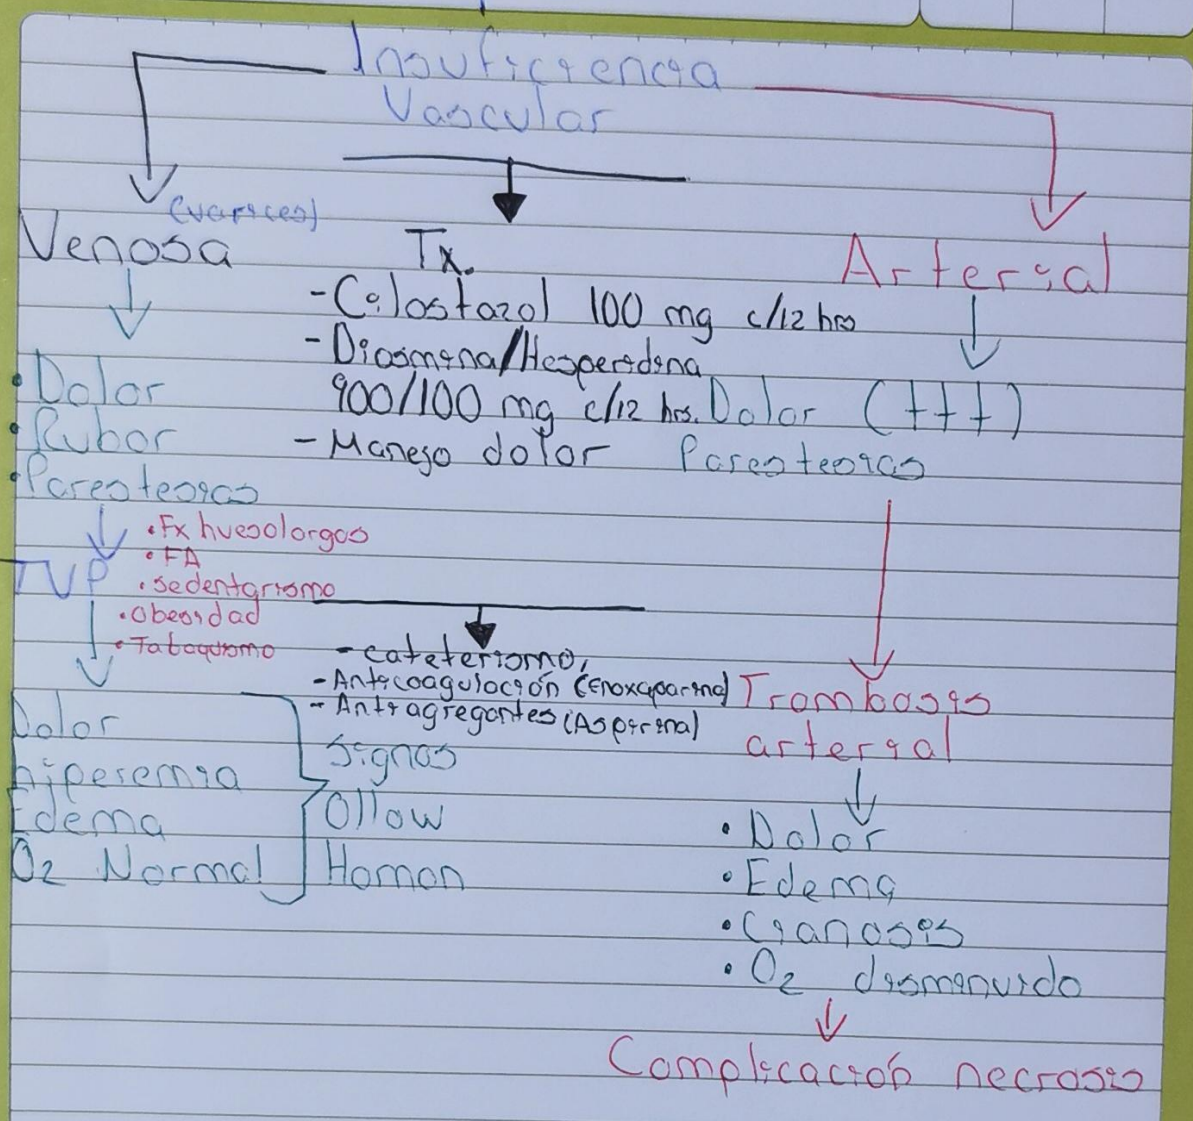 Insuficiencia
Vascular
(varices)
Venosa
Dolor
Rubor
Paresteosias
TVP
• Fx huesolorgas
• FA
• Sedentarismo
• Obesidad
• Tabaquismo
Dolor
hiperemia
Edema
O2 Normal
Signos
Ollow
Homon
Tx.
- Cilostazol 100 mg c/12 hrs
- Diosmina/Hesperidina
900/100 mg c/12 hrs.
- Manejo dolor
- cateterismo,
- Anticoagulación (Enoxaparina)
- Antiagregantes (Aspirina)
Arterial
Dolor (+++)
Parestesias
Trombosis
arterial
• Dolor
• Edema
• Cianosis
• O2 disminuido
Complicación necrosis